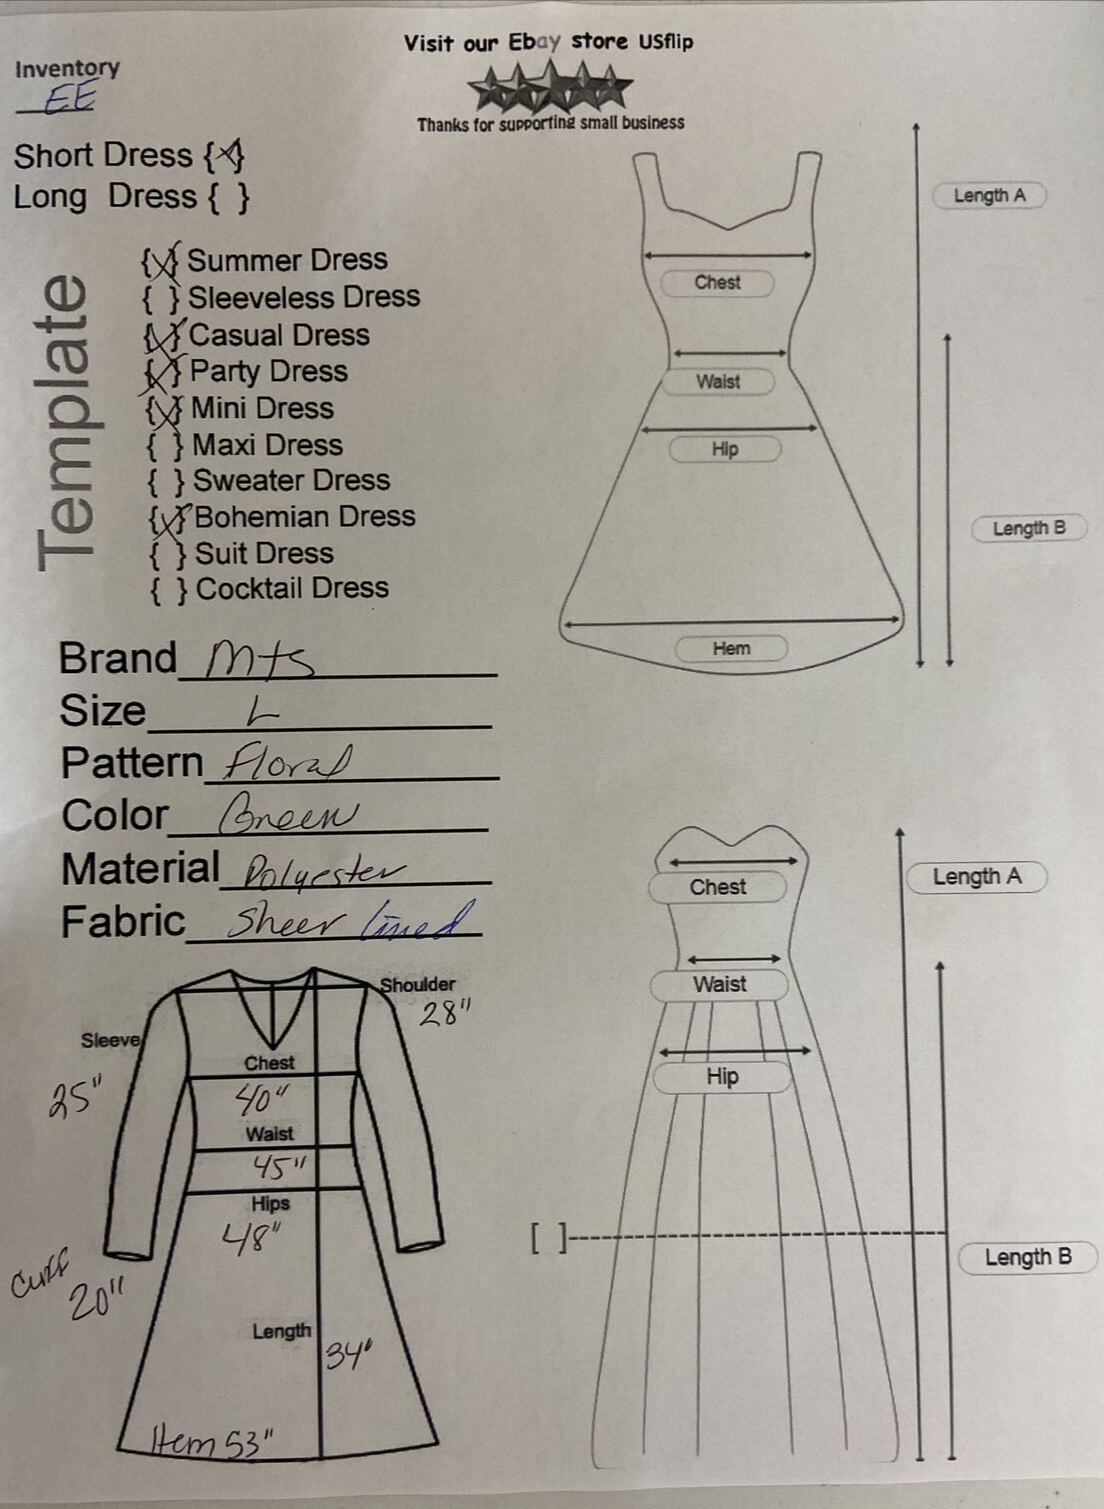 Visit our Ebay store USflip
Thanks for supporting small business
Inventory
EE
Short Dress {X}
Long Dress { }
Template
{X} Summer Dress
{ } Sleeveless Dress
{X} Casual Dress
{X} Party Dress
{X} Mini Dress
{ } Maxi Dress
{ } Sweater Dress
{X} Bohemian Dress
{ } Suit Dress
{ } Cocktail Dress
Brand Mts
Size L
Pattern Floral
Color Green
Material Polyester
Fabric Sheer lined
Shoulder
28"
Sleeve
25"
Chest
40"
Waist
45"
Hips
48"
Cuff
20"
Length
34"
Hem 53"
Length A
Chest
Waist
Hip
Length B
Hem
Chest
Length A
Waist
Hip
[ ]
Length B